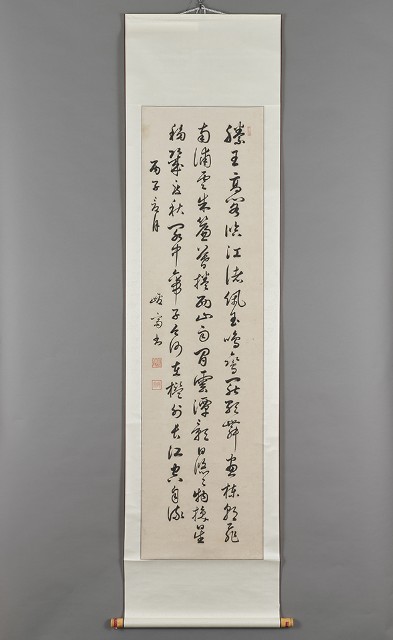 滕王高閣臨江渚佩玉鳴鸞罷歌舞画棟朝飛
南浦雲朱簾暮捲西山雨閒雲潭影日悠々物換星
移幾度秋閣中帝子今何在檻外長江空自流
丙子 月 書